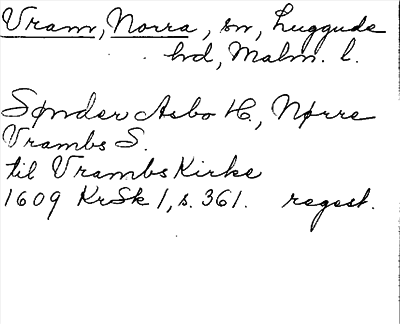 Vram, Norra, sn, Luggude
hd, Malm. l.
Sønder Asbo H., Nørre
Vrambs S.
til Vrambs Kirke
1609 KrSk 1, s. 361. regest.